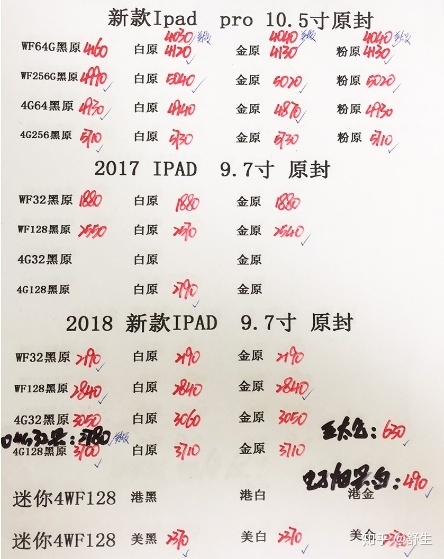 新款Ipad pro 10.5寸原封
4030 4040 4040
WF64G黑原 4160 白原 4120 金原 4130 粉原 4130
WF256G黑原 4990 白原 5040 金原 5020 粉原 5020
4G64黑原 4930 白原 4940 金原 4870 粉原 4930
4G256黑原 5710 白原 5730 金原 5730 粉原 5710
2017 IPAD 9.7寸 原封
WF32黑原 1880 白原 1880 金原 1880
WF128黑原 2550 白原 2570 金原 2540
4G32黑原 白原 金原
4G128黑原 白原 2790 金原
2018 新款IPAD 9.7寸 原封
WF32黑原 2190 白原 2190 金原 2190
WF128黑原 2840 白原 2840 金原 2840
4G32黑原 3050 白原 3060 金原 3050
630
4G128黑原 3700 白原 3710 金原 3710
490
迷你4WF128 港黑 港白 港金
迷你4WF128 美黑 2370 美白 2370 美金
知乎 @舒生